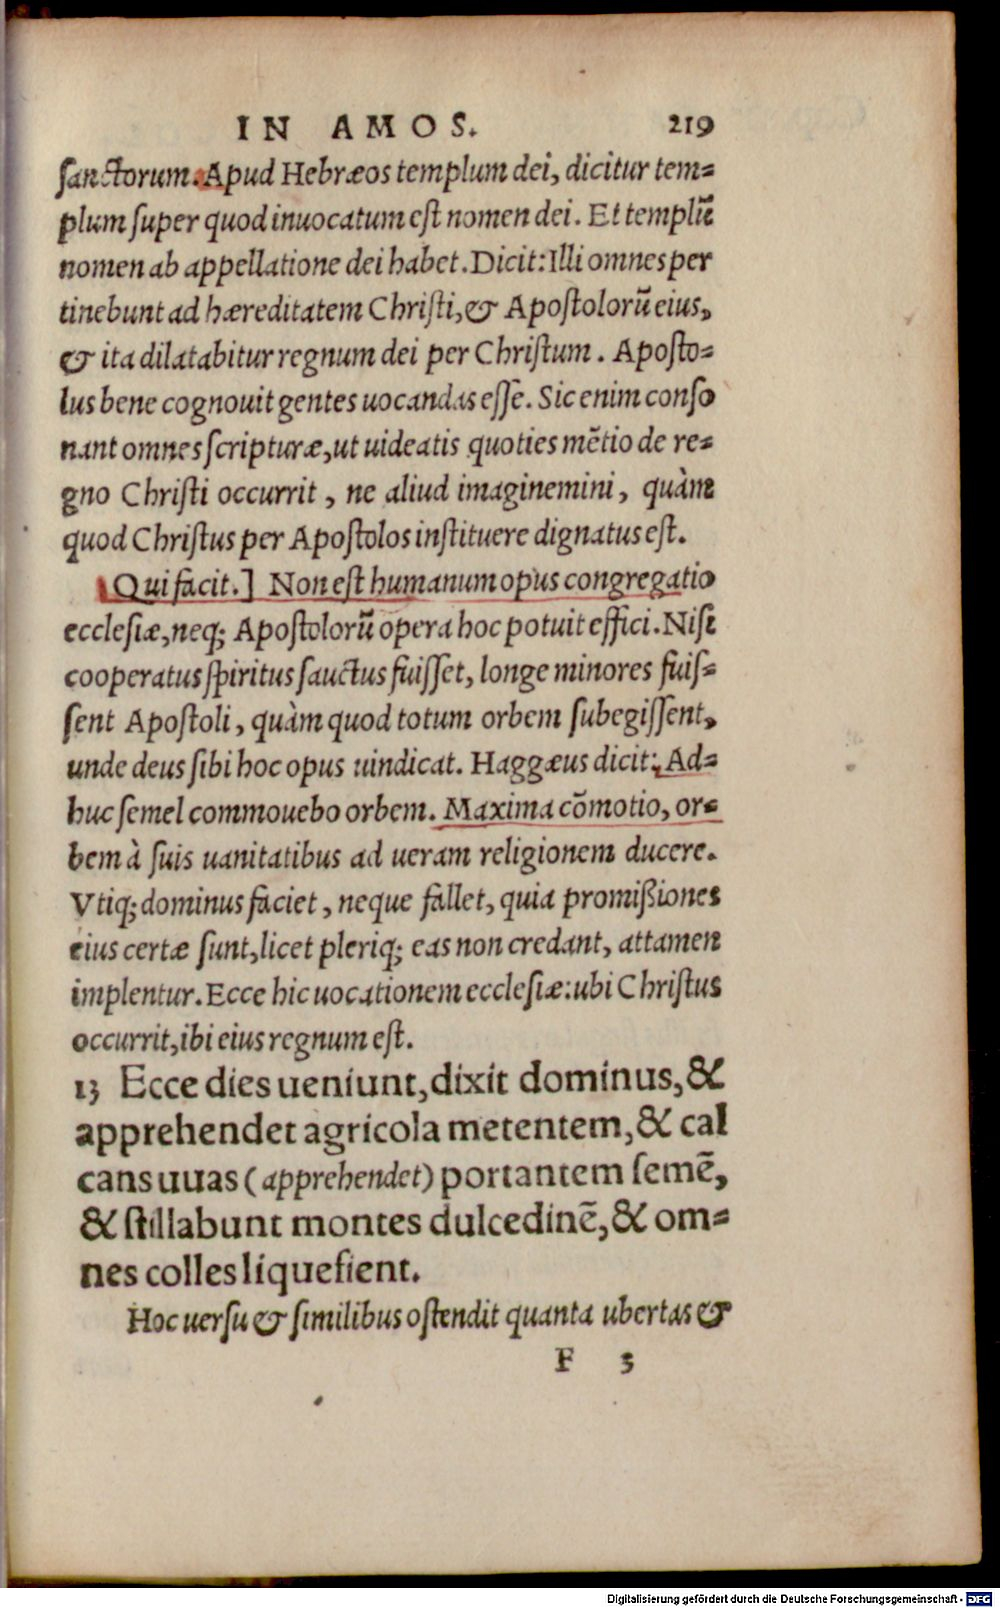 IN AMOS. 219
sanctorum. Apud Hebræos templum dei, dicitur tem=
plum super quod inuocatum est nomen dei. Et templū
nomen ab appellatione dei habet. Dicit: Illi omnes per
tinebunt ad hæreditatem Christi, & Apostolorū eius,
& ita dilatabitur regnum dei per Christum. Aposto=
lus bene cognouit gentes uocandas esse. Sic enim conso
nant omnes scripturæ, ut uideatis quoties mētio de re=
gno Christi occurrit, ne aliud imaginemini, quàm
quod Christus per Apostolos instituere dignatus est.
Qui facit.] Non est humanum opus congregatio
ecclesiæ, neq; Apostolorū opera hoc potuit effici. Nisi
cooperatus spiritus sauctus fuisset, longe minores fuis=
sent Apostoli, quàm quod totum orbem subegissent,
unde deus sibi hoc opus uindicat. Haggæus dicit: Ad=
huc semel commouebo orbem. Maxima cōmotio, or=
bem à suis uanitatibus ad ueram religionem ducere.
Vtiq; dominus faciet, neque fallet, quia promißiones
eius certæ sunt, licet pleriq; eas non credant, attamen
implentur. Ecce hic uocationem ecclesiæ: ubi Christus
occurrit, ibi eius regnum est.
13 Ecce dies ueniunt, dixit dominus, &
apprehendet agricola metentem, & cal
cans uuas (apprehendet) portantem semē,
& stillabunt montes dulcedinē, & om=
nes colles liquefient.
Hoc uersu & similibus ostendit quanta ubertas &
F 3
Digitalisierung gefördert durch die Deutsche Forschungsgemeinschaft - DFG